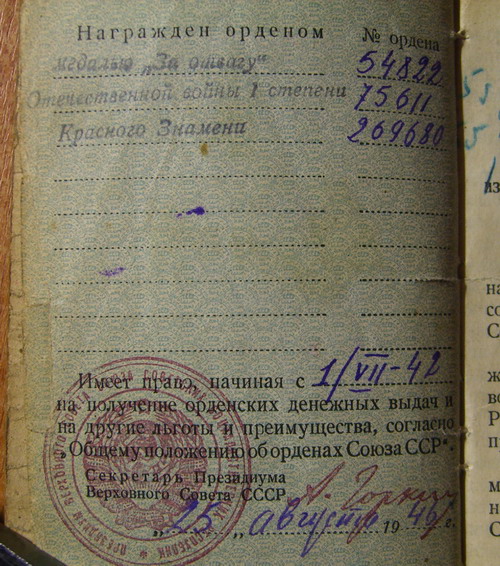 Награжден орденом № ордена
медалью „За отвагу“ 54822
Отечественной войны I степени 75611
Красного Знамени 269680
Имеет право, начиная с 1/VII-42
на получение орденских денежных выдач и
на другие льготы и преимущества, согласно
„Общему положению об орденах Союза ССР“.
Секретарь Президиума
Верховного Совета СССР А. Горкин
„25„ августа 1946 г.